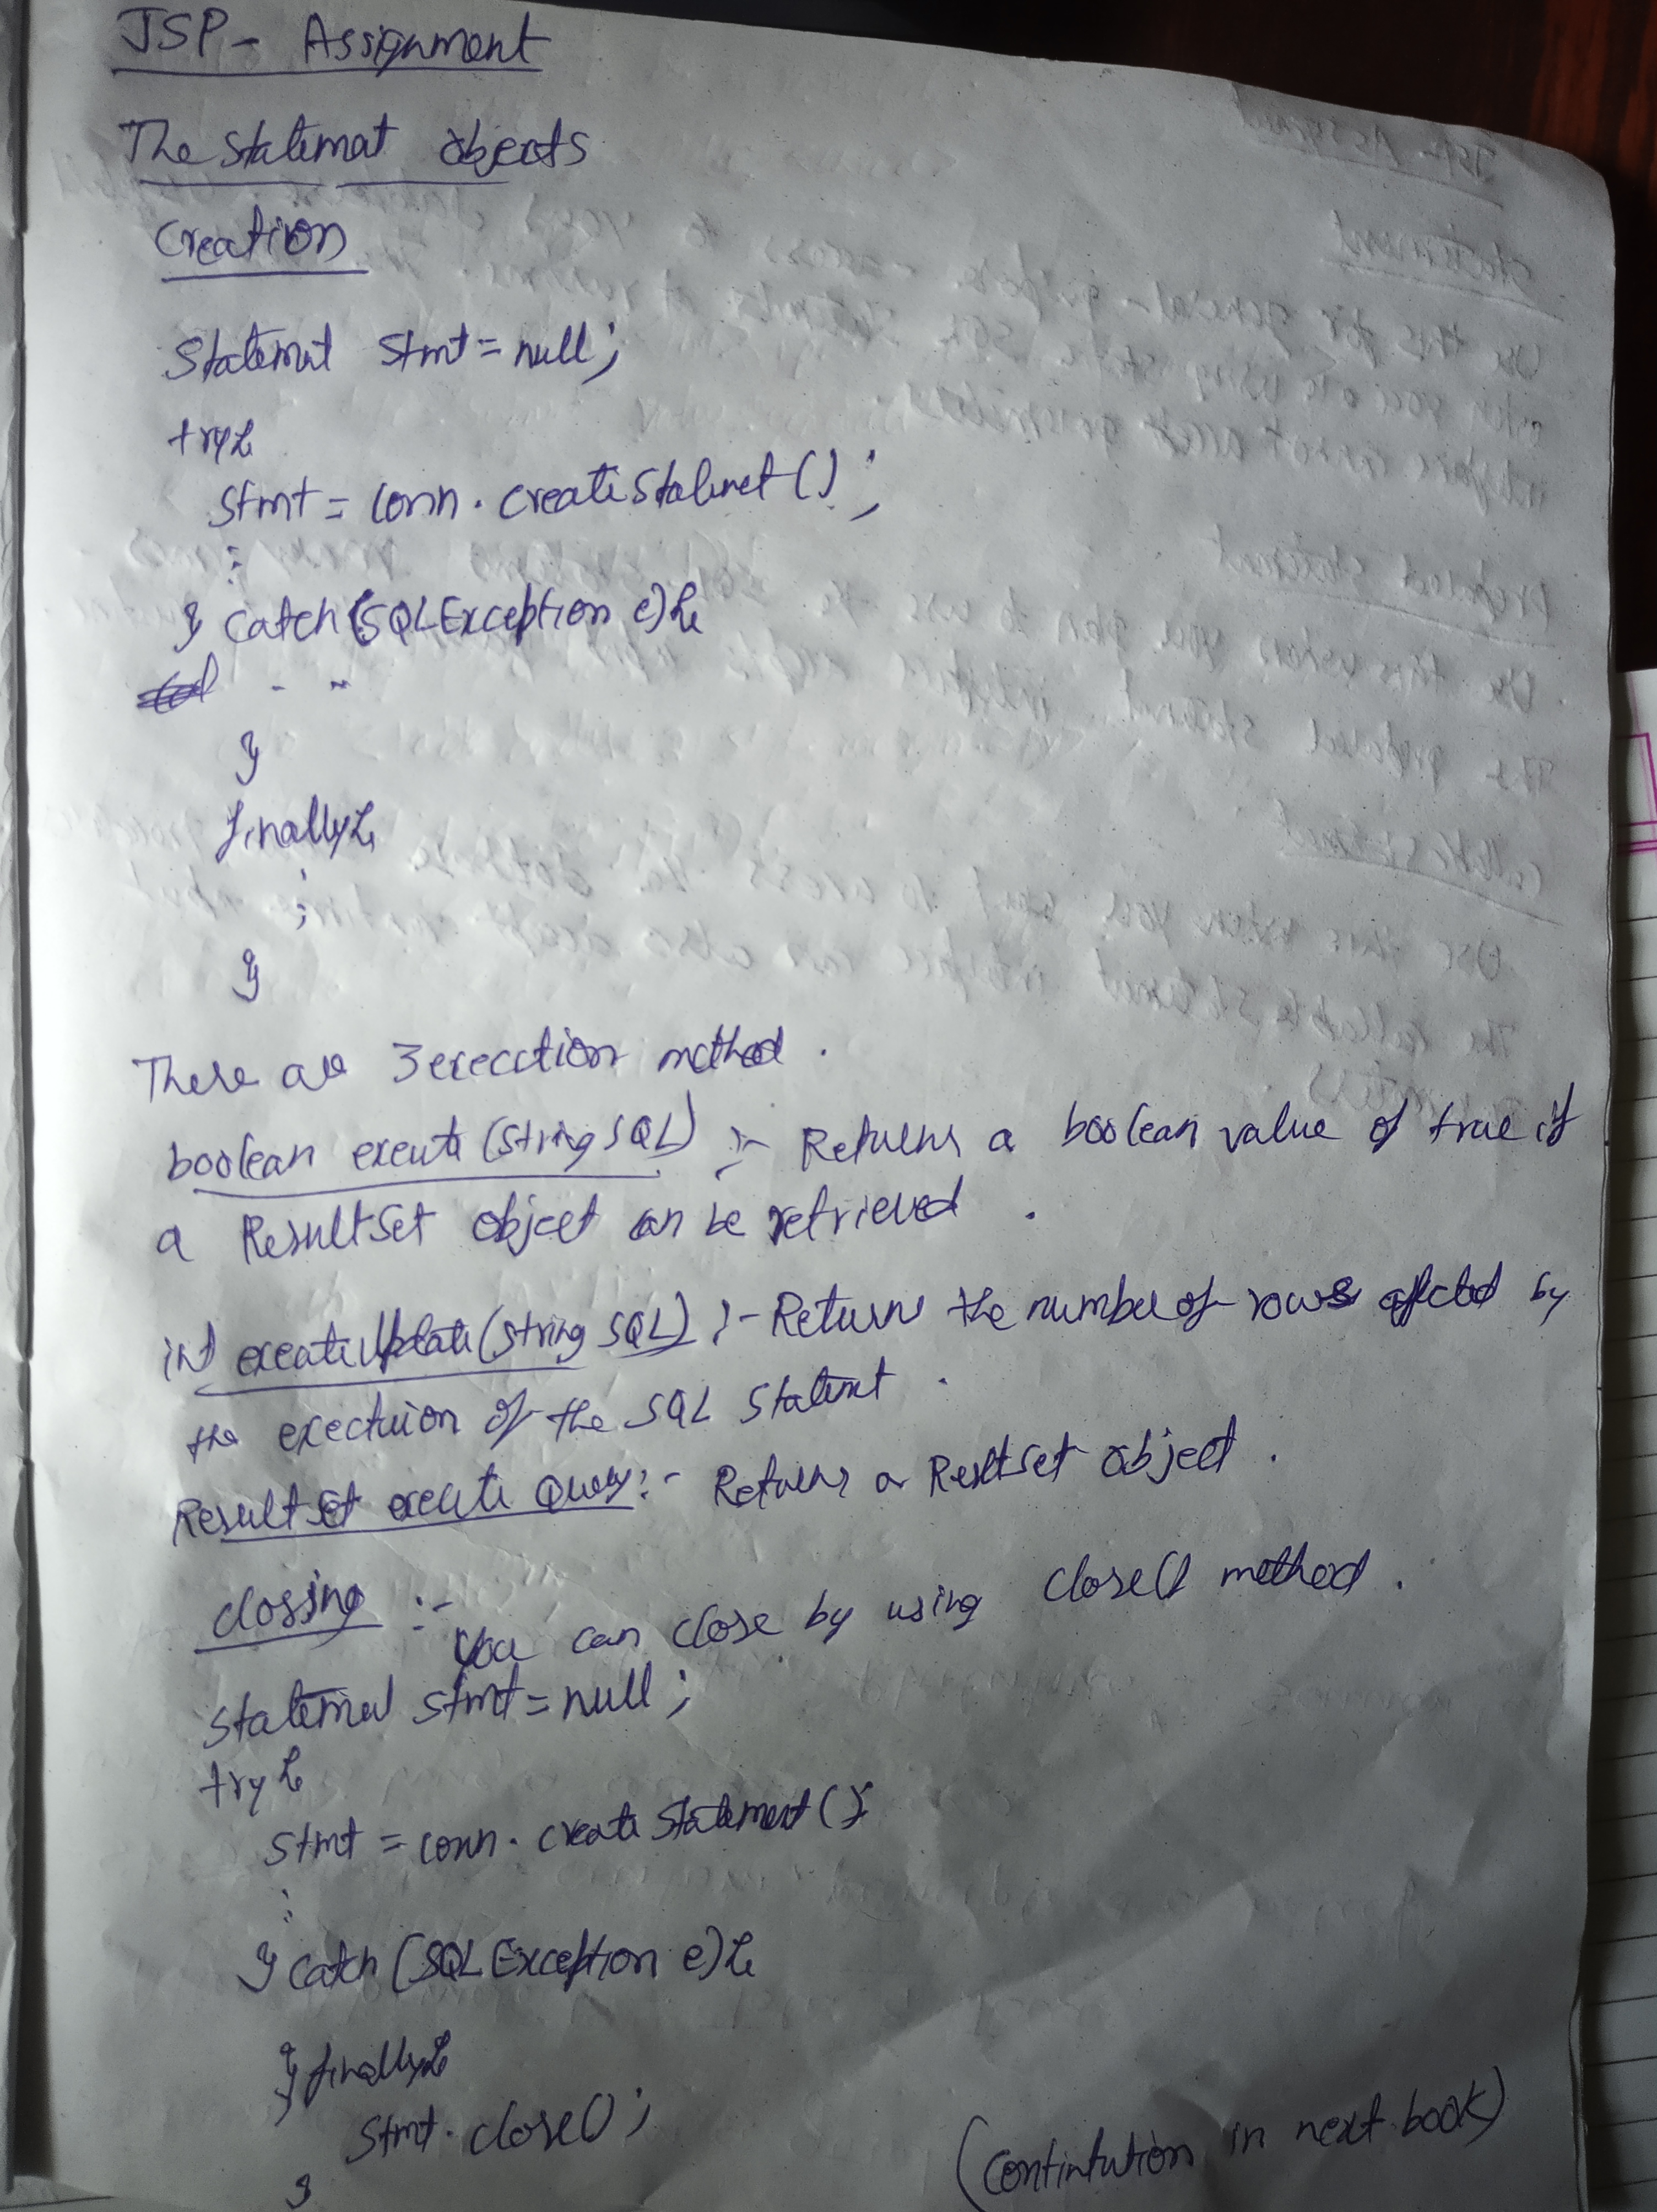 JSP - Assignment
The statemat objects
Creation
Statemnt stmt = null;
try{
stmt = conn. createStatemet();
:
} catch (SQLException e){
- --
}
finally{
:
}
There are 3 execction method.
boolean execute (String SQL) :- Returns a boolean value of true if
a ResultSet object can be retrieved.
int executeUpdate (String SQL) :- Returns the number of rows affected by
the exectuion of the SQL Statemt.
ResultSet execute Query :- Returns a ResltSet object.
closing :- You can close by using close() method.
Statement stmt = null;
try{
stmt = conn. create Statement();
:
} catch (SQL Exception e){
} finally{
stmt. close();
}
(contintution in next book)